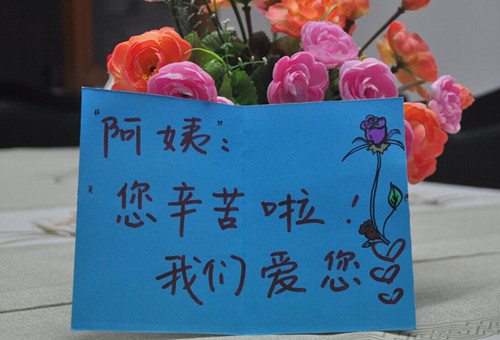 "阿姨"：
您辛苦啦！
我们爱您